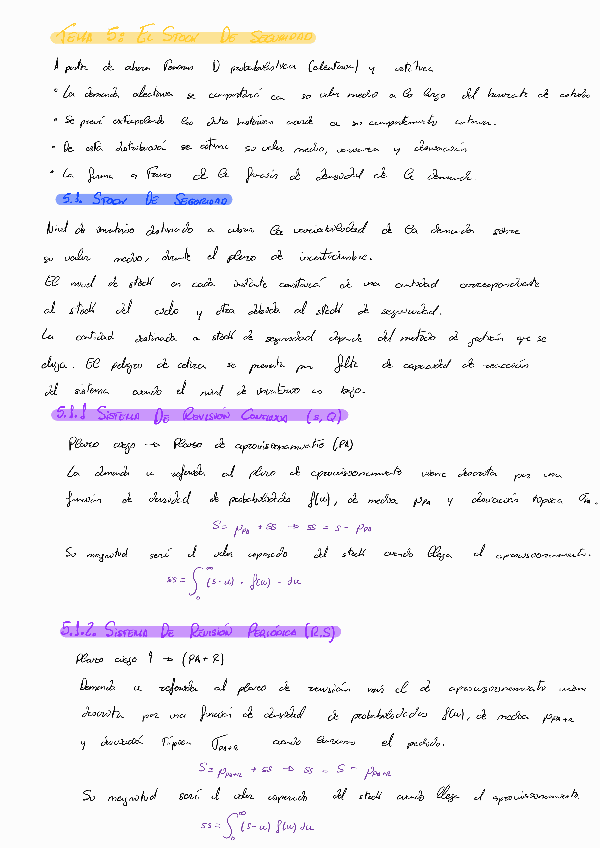 TEMA 5: EL STOCK DE SEGURIDAD
A partir de ahora Tenemos D probabilística (aleatoria) y estática
• La demanda aleatoria se comportará con su valor medio a lo largo del horizonte de estudio
• Se prevé extrapolando los datos históricos acorde a su comportamiento
• De está distribución se estima su valor medio, varianza y desviación
• La forma a Través de la función de densidad de la demanda
5.1. STOCK DE SEGURIDAD
Nivel de inventario destinado a cubrir la variabilidad de la demanda sobre
su valor medio, durante el plazo de incertidumbre.
El nivel de stock en cada instante constará de una cantidad correspondiente
al stock del ciclo y otra debida al stock de seguridad.
La cantidad destinada a stock de seguridad depende del metodo de gestión que se
elija. El peligro de rotura se presenta por falta de capacidad de reacción
del sistema cuando el nivel de inventario es bajo.
5.1.1 SISTEMA DE REVISIÓN CONTINUA (s, Q)
Plazo ciego → Plazo de aprovisionamiento (PA)
La demanda u referida al plazo de aprovisionamiento viene descrita por una
función de densidad de probabilidades f(u), de media μPA y desviación típica σPA.
S = μPA + ss → ss = s - μPA
Su magnitud será el valor esperado del stock cuando llega el aprovisionamiento.
ss = ∫₀^∞ (s-u) · f(u) · du
5.1.2. SISTEMA DE REVISIÓN PERIÓDICA (R.S)
Plazo ciego ↑ → (PA + R)
Demanda u referida al plazo de revisión más el de aprovisionamiento viene
descrita por una función de densidad de probabilidades f(u), de media μPA+R
y desviación Típica σPA+R cuando el pedido.
S = μPA+R + ss → ss = S - μPA+R
Su magnitud será el valor esperado del stock cuando llega el aprovisionamiento.
ss = ∫₀^∞ (S-u) f(u) du